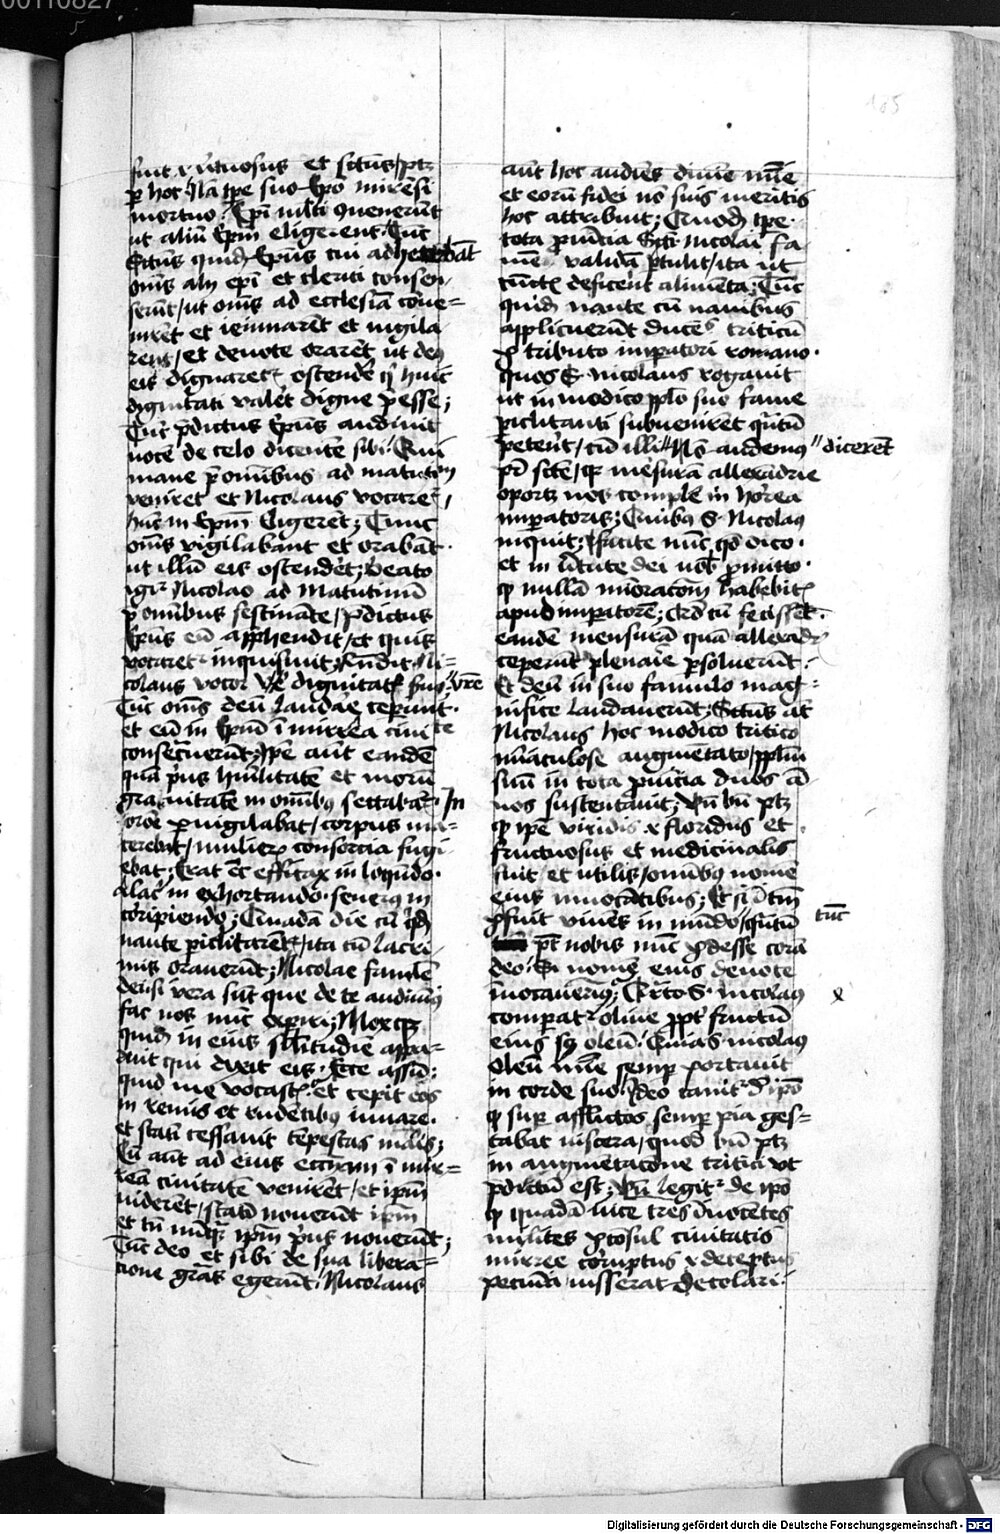 fuit et virtuosus et sanctus / patet
per hoc Nam ipse suo Episcopo mirensi
mortuo. Episcopi multi convenerunt
ut alium Episcopum eligerent. Tunc
Sanctus quidam Episcopus cui adherebant
omnes alii episcopi et clerici consen-
serunt / ut omnes ad ecclesiam conve=
nirent et ieiunarent et vigila
rent / et devote orarent ut deus
eis dignaretur ostendere quis huic
dignitati valeret digne preesse;
Tunc predictus Episcopus audivit
vocem de celo dicentem sibi / Qui
mane pre omnibus ad matutinum
veniret et Nicolaus vocaretur /
hunc in Episcopum Eligerent; Tunc
omnes vigilabant et orabant.
ut illum eis ostenderet; Beato
igitur Nicolao ad Matutinum
pre omnibus festinante / predictus
Episcopus eum apprehendit / et quis
vocaretur inquisivit; Respondit Ni=
colaus vocor Vestre dignitatis servus
Tunc omnes deum laudare ceperunt.
et eum in Episcopum in mirrea civitate
consecraverunt; Ipse autem eandem
quam prius humilitatem et morum
gravitatem in omnibus sectabatur. In
oratione pervigilabat / corpus ma=
cerebat / mulierum consortia fugi
ebat; Erat etiam efficax in loquendo.
alacer in exhortando. severus in
corripiendo; Quadam die cum quidam
naute periclitarentur / ita cum lacri
mis oraverunt; Nicolae famule
dei si vera sunt que de te audivimus
fac nos nunc experiri; Mox quidam
quidam in eius similitudinem appa-
ruit qui dixit eis. Ecce assum;
quid me vocastis. et cepit eos
in remis et rudentibus iuvare.
et statim cessavit tempestas maris;
Cum autem ad eius ecclesiam in mir=
rea civitatem venirent / et ipsum
viderent / statim noverunt ipsum
et tamen nunquam ipsum prius noverunt;
Tunc deo et sibi de sua libera=
cione gratias egerunt. Nicolaus
autem hoc audiens divine misericordie
et eorum fidei non suis meritis
hoc attribuit; Quodam tempore
tota provincia Sancti Nicolai fa
mem validam pertulit / ita ut
cunctis deficerent alimenta; Tunc
quidam naute cum navibus
applicuerunt ducentes triticum
pro tributo imperatori romano.
quos S. Nicolaus rogavit
ut in modico populo suo fame
periclitanti subvenirent
peteret / cum illi "Non audemus "dicerent
pater sancte / quia mensuram allexandrie
oportet nos complere in horrea
imperatoris; Quibus S. Nicolaus
inquit; facite nunc quod dico.
et in virtute dei vobis promitto.
quod nullam minoracionem habebitis
apud imperatorem; Quod cum fecissent.
eandem mensuram quam allexandrie
ceperunt plenarie persolverunt.
Et deum in suo famulo mag=
nifice laudaverunt; Sanctus autem
Nicolaus hoc modico tritico
miraculose augmentato / populum
suum in tota provincia duos an
nos sustentavit; Unde bene patet
quod ipse viridis et floridus et
fructuosus et medicinalis
fuit et utilis / omnibus nomen
eius invocantibus; Et si tantum
profuit vivens in mundo / quantum tunc
potest nobis nunc prodesse coram
deo / Si nomen eius devote
invocaverimus; Certe S. nicolaus
comparatur olive propter fructum
eius scilicet oleum. Quia S. nicolaus
oleum misericordie semper portavit
in corde suo. Ideo canitur de ipso
quod super afflictos semper pia ges=
tabat viscera / quod bene patet
in augmentacione tritici ut
predictum est; Unde legitur de ipso
quod quadam vice tres innocentes
milites consul civitatis
mirree corruptus et deceptus
pecunia iusserat decolari.
Digitalisierung gefördert durch die Deutsche Forschungsgemeinschaft - DFG